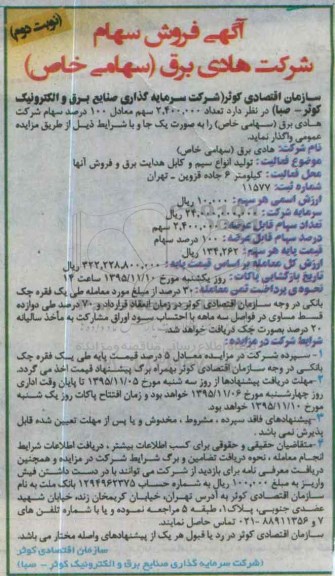 (نوبت دوم)
آگهی فروش سهام
شرکت هادی برق (سهامی خاص)
سازمان اقتصادی کوثر(شرکت سرمایه گذاری صنایع برق و الکترونیک
کوثر - صبا) در نظر دارد تعداد ۲,۴۰۰,۰۰۰ سهم معادل ۱۰۰ درصد سهام شرکت
هادی برق (سهامی خاص) را به صورت یک جا و با شرایط ذیل از طریق مزایده
عمومی واگذار نماید.
نام شرکت: هادی برق (سهامی خاص)
موضوع فعالیت: تولید انواع سیم و کابل هدایت برق و فروش آنها
محل فعالیت: کیلومتر ۶ جاده قزوین - تهران
شماره ثبت: ۱۱۵۷۷
ارزش اسمی هر سهم: ۱۰,۰۰۰ ریال
سرمایه شرکت: ۲۴,۰۰۰,۰۰۰,۰۰۰ ریال
تعداد سهام قابل عرضه: ۲,۴۰۰,۰۰۰ سهم
درصد سهام قابل عرضه: ۱۰۰ درصد سهام
قیمت پایه هر سهم: ۱۳۴,۲۶۲ ریال
ارزش کل معامله براساس قیمت پایه: ۳۲۲,۲۲۸,۸۰۰,۰۰۰ ریال
تاریخ بازگشایی پاکات: روز یکشنبه مورخ ۱۳۹۵/۱۱/۱۰ ساعت ۱۴
نحوه ی پرداخت ثمن معامله: ۳۰ درصد از مبلغ مورد معامله طی یک فقره چک
بانکی در وجه سازمان اقتصادی کوثر در زمان انعقاد قرارداد و ۷۰ درصد طی دوازده
قسط مساوی در فواصل سه ماهه با احتساب سود اوراق مشارکت به مأخذ سالیانه
۲۰ درصد بصورت چک دریافت خواهد شد.
شرایط شرکت در مزایده:
۱- سپرده شرکت در مزایده معادل ۵ درصد قیمت پایه طی یک فقره چک
بانکی در وجه سازمان اقتصادی کوثر بهمراه برگ پیشنهاد قیمت اخذ می گردد.
۲- مهلت دریافت پیشنهادها از روز سه شنبه مورخ ۱۳۹۵/۱۱/۰۵ تا پایان وقت اداری
روز چهارشنبه مورخ ۱۳۹۵/۱۱/۰۶ خواهد بود و زمان افتتاح پاکات روز یک شنبه
مورخ ۱۳۹۵/۱۱/۱۰ خواهد بود.
۳- پیشنهادهای فاقد سپرده ، مشروط ، مخدوش و یا پس از مهلت تعیین شده قابل
پذیرش نمی باشد.
۴- متقاضیان حقیقی و حقوقی برای کسب اطلاعات بیشتر ، دریافت اطلاعات شرایط
انجام معامله ، نحوه دریافت تضامین و برگ شرایط شرکت در مزایده و همچنین
دریافت معرفی نامه برای بازدید از شرکت می توانند با در دست داشتن فیش
واریز به مبلغ ۱۰۰,۰۰۰ ریال به شماره حساب ۱۲۹۴۹۶۲۳۷۵ بانک ملت به نام
سازمان اقتصادی کوثر به آدرس تهران، خیابان کریمخان زند، خیابان شهید
عضدی جنوبی، پلاک۱، طبقه ۵ مراجعه نموده و یا با شماره تلفن های
۷ و ۸۸۹۱۱۳۵۶ -۰۲۱ تماس حاصل نمایند.
سازمان اقتصادی کوثر در رد یا قبول هر یک از پیشنهادهای واصله مختار می باشد.
سازمان اقتصادی کوثر
(شرکت سرمایه گذاری صنایع برق و الکترونیک کوثر - صبا)